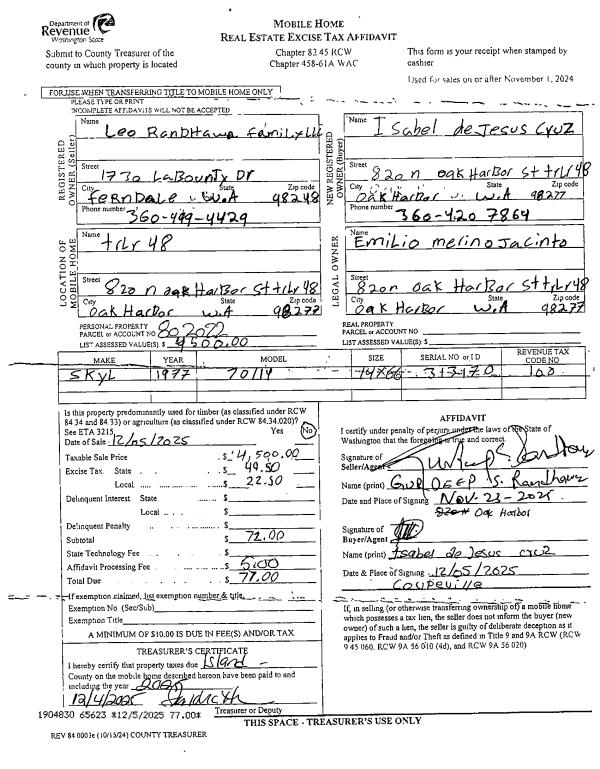 Department of
Revenue
Washington State
MOBILE HOME
REAL ESTATE EXCISE TAX AFFIDAVIT
Submit to County Treasurer of the
county in which property is located
Chapter 82 45 RCW
Chapter 458-61A WAC
This form is your receipt when stamped by
cashier
Used for sales on or after November 1, 2024
FOR USE WHEN TRANSFERRING TITLE TO MOBILE HOME ONLY
PLEASE TYPE OR PRINT
INCOMPLETE AFFIDAVITS WILL NOT BE ACCEPTED
REGISTERED OWNER (Seller)
Name
Leo Randhawa family llc
Street
1730 LaBounty Dr
City State Zip code
Ferndale WA 98248
Phone number
360-499-4429
NEW REGISTERED OWNER (Buyer)
Name
Isabel de Jesus Cruz
Street
820 n oak Harbor St trlr 48
City State Zip code
Oak Harbor W.A 98277
Phone number
360-420 7864
LOCATION OF MOBILE HOME
Name
trlr 48
Street
820 n oak Harbor St trlr 48
City State Zip code
Oak Harbor W.A 98277
LEGAL OWNER
Name
Emilio merino Jacinto
Street
820n oak Harbor St trlr 48
City State Zip code
Oak Harbor W.A 98277
PERSONAL PROPERTY
PARCEL or ACCOUNT NO 802022
LIST ASSESSED VALUE(S) $ 4500.00
REAL PROPERTY
PARCEL or ACCOUNT NO
LIST ASSESSED VALUE(S) $
MAKE YEAR MODEL SIZE SERIAL NO or ID REVENUE TAX CODE NO
SKYL 1977 70/14 14X66 100
Is this property predominantly used for timber (as classified under RCW
84.34 and 84.33) or agriculture (as classified under RCW 84.34.020)?
See ETA 3215 Yes No
Date of Sale 12/05/2025
Taxable Sale Price $ 4,500.00
Excise Tax State $ 49.50
Local $ 22.50
Delinquent Interest State $
Local $
Delinquent Penalty $
Subtotal $ 72.00
State Technology Fee $
Affidavit Processing Fee $ 5.00
Total Due $ 77.00
If exemption claimed, list exemption number & title
Exemption No (Sec/Sub)
Exemption Title
A MINIMUM OF $10.00 IS DUE IN FEE(S) AND/OR TAX
TREASURER'S CERTIFICATE
I hereby certify that property taxes due Island
County on the mobile home described hereon have been paid to and
including the year 2025
12/4/2025
Treasurer or Deputy
AFFIDAVIT
I certify under penalty of perjury under the laws of the State of
Washington that the foregoing is true and correct.
Signature of
Seller/Agent
Name (print) Gurdeep S. Randhawa
Date and Place of Signing Nov-23-2025
Oak Harbor
Signature of
Buyer/Agent
Name (print) Isabel de Jesus cruz
Date & Place of Signing 12/05/2025
Coupeville
If, in selling (or otherwise transferring ownership of) a mobile home
which possesses a tax lien, the seller does not inform the buyer (new
owner) of such a lien, the seller is guilty of deliberate deception as it
applies to Fraud and/or Theft as defined in Title 9 and 9A RCW (RCW
9 45 060, RCW 9A 56 010 (4d), and RCW 9A 56 020)
1904830 65623 *12/5/2025 77.00*
THIS SPACE - TREASURER'S USE ONLY
REV 84 0003e (10/15/24) COUNTY TREASURER